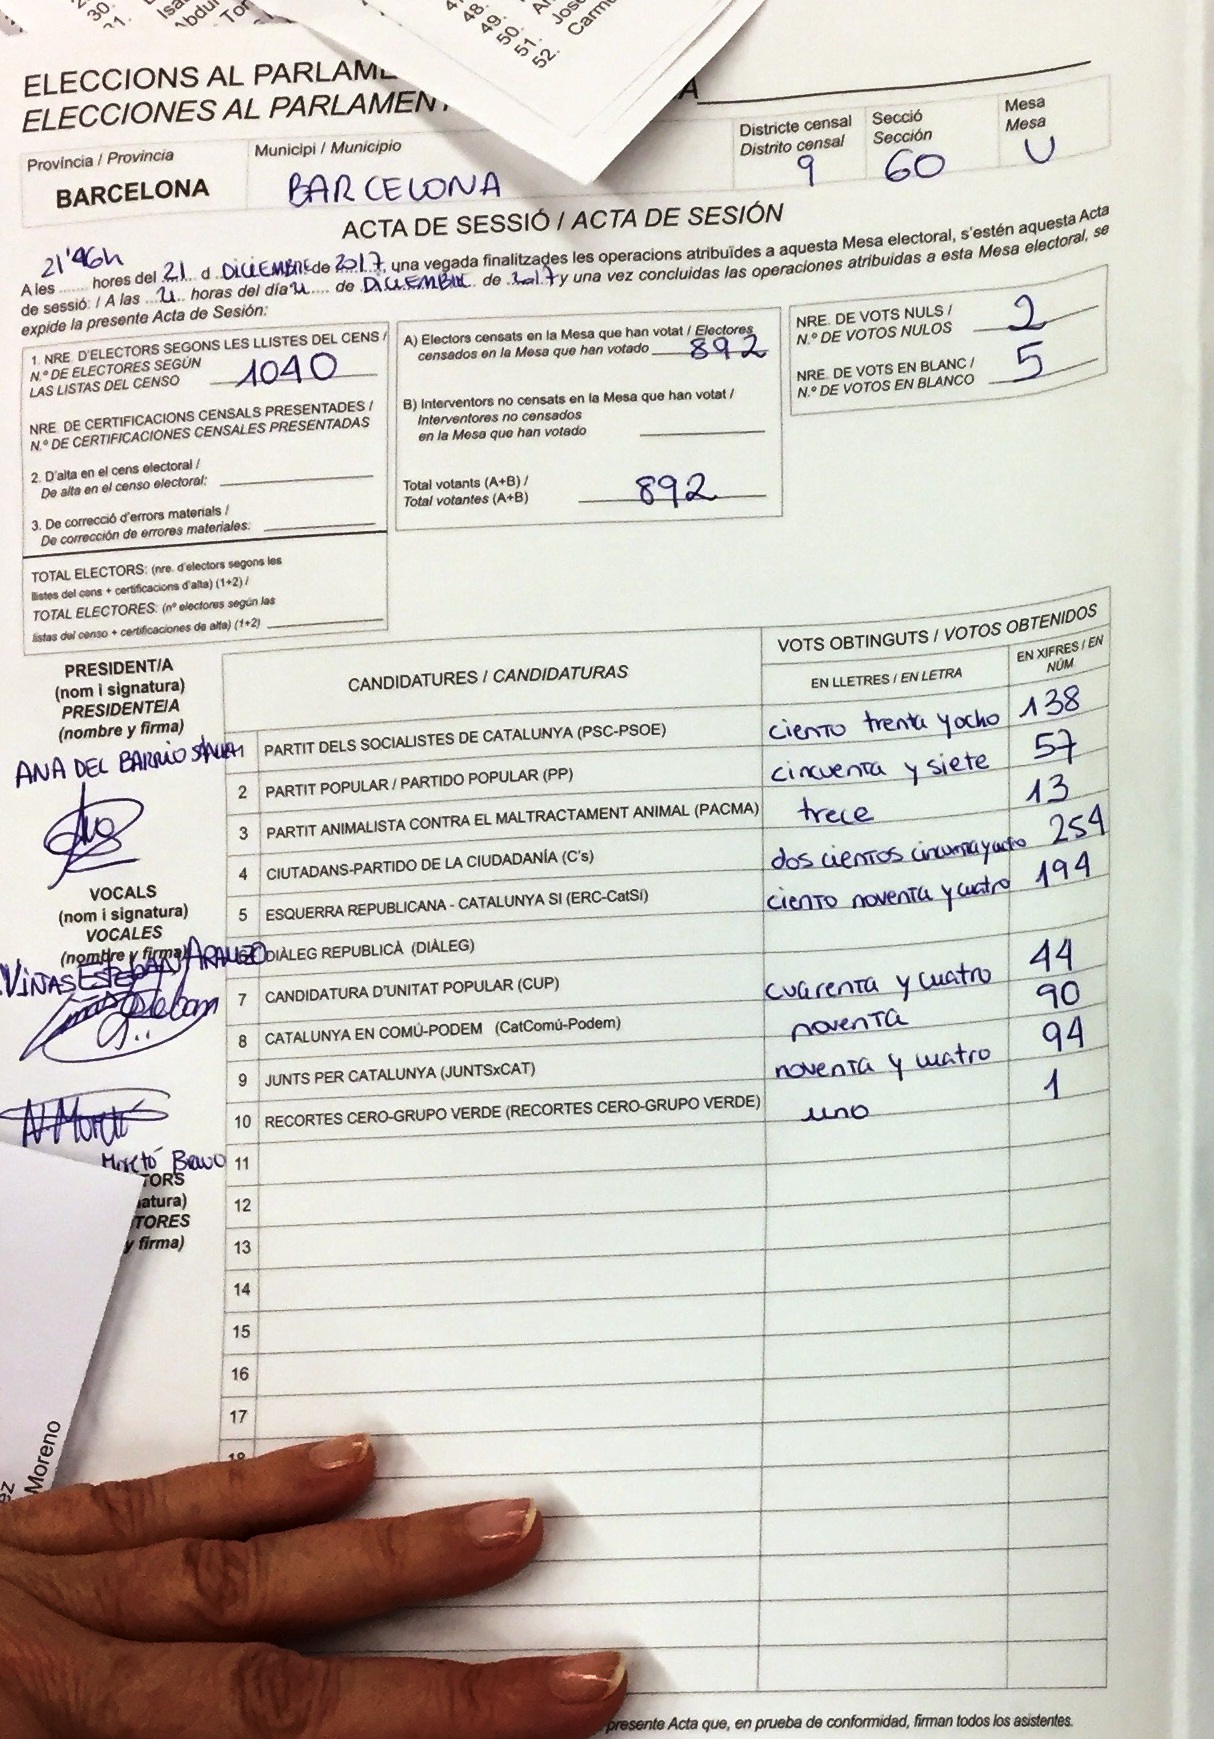 ELECCIONS AL PARLAME
ELECCIONES AL PARLAMEN
Provincia / Provincia
BARCELONA
Municipi / Municipio
BARCELONA
Districte censal
Distrito censal
9
Secció
Sección
60
Mesa
Mesa
U
ACTA DE SESSIÓ / ACTA DE SESIÓN
A les 21'46h hores del 21 d Diciembre de 2017, una vegada finalitzades les operacions atribuïdes a aquesta Mesa electoral, s'estén aquesta Acta
de sessió: / A las 21 horas del día 21 de Diciembre de 2017 y una vez concluidas las operaciones atribuidas a esta Mesa electoral, se
expide la presente Acta de Sesión:
1. NRE. D'ELECTORS SEGONS LES LLISTES DEL CENS /
N.º DE ELECTORES SEGÚN
LAS LISTAS DEL CENSO 1040
NRE. DE CERTIFICACIONS CENSALS PRESENTADES /
N.º DE CERTIFICACIONES CENSALES PRESENTADAS
2. D'alta en el cens electoral /
De alta en el censo electoral:
3. De correcció d'errors materials /
De corrección de errores materiales:
TOTAL ELECTORS: (nre. d'electors segons les
llistes del cens + certificacions d'alta) (1+2) /
TOTAL ELECTORES: (nº electores según las
listas del censo + certificaciones de alta) (1+2)
A) Electors censats en la Mesa que han votat / Electores
censados en la Mesa que han votado 892
B) Interventors no censats en la Mesa que han votat /
Interventores no censados
en la Mesa que han votado
Total votants (A+B) /
Total votantes (A+B) 892
NRE. DE VOTS NULS /
N.º DE VOTOS NULOS 2
NRE. DE VOTS EN BLANC /
N.º DE VOTOS EN BLANCO 5
PRESIDENT/A
(nom i signatura)
PRESIDENTE/A
(nombre y firma)
ANA DEL BARRIO
VOCALS
(nom i signatura)
VOCALES
(nombre y firma)
TORS
natura)
TORES
y firma)
CANDIDATURES / CANDIDATURAS
VOTS OBTINGUTS / VOTOS OBTENIDOS
EN LLETRES / EN LETRA
EN XIFRES / EN NÚM
1 PARTIT DELS SOCIALISTES DE CATALUNYA (PSC-PSOE) ciento trenta y ocho 138
2 PARTIT POPULAR / PARTIDO POPULAR (PP) cincuenta y siete 57
3 PARTIT ANIMALISTA CONTRA EL MALTRACTAMENT ANIMAL (PACMA) trece 13
4 CIUTADANS-PARTIDO DE LA CIUDADANÍA (C's) doscientos cincuenta y cuatro 254
5 ESQUERRA REPUBLICANA - CATALUNYA SI (ERC-CatSí) ciento noventa y cuatro 194
6 DIÀLEG REPUBLICÀ (DIÀLEG)
7 CANDIDATURA D'UNITAT POPULAR (CUP) cuarenta y cuatro 44
8 CATALUNYA EN COMÚ-PODEM (CatComú-Podem) noventa 90
9 JUNTS PER CATALUNYA (JUNTSxCAT) noventa y cuatro 94
10 RECORTES CERO-GRUPO VERDE (RECORTES CERO-GRUPO VERDE) uno 1
11
12
13
14
15
16
17
18
presente Acta que, en prueba de conformidad, firman todos los asistentes.
Moreno
48.
49.
50.
51. José
52. Carm